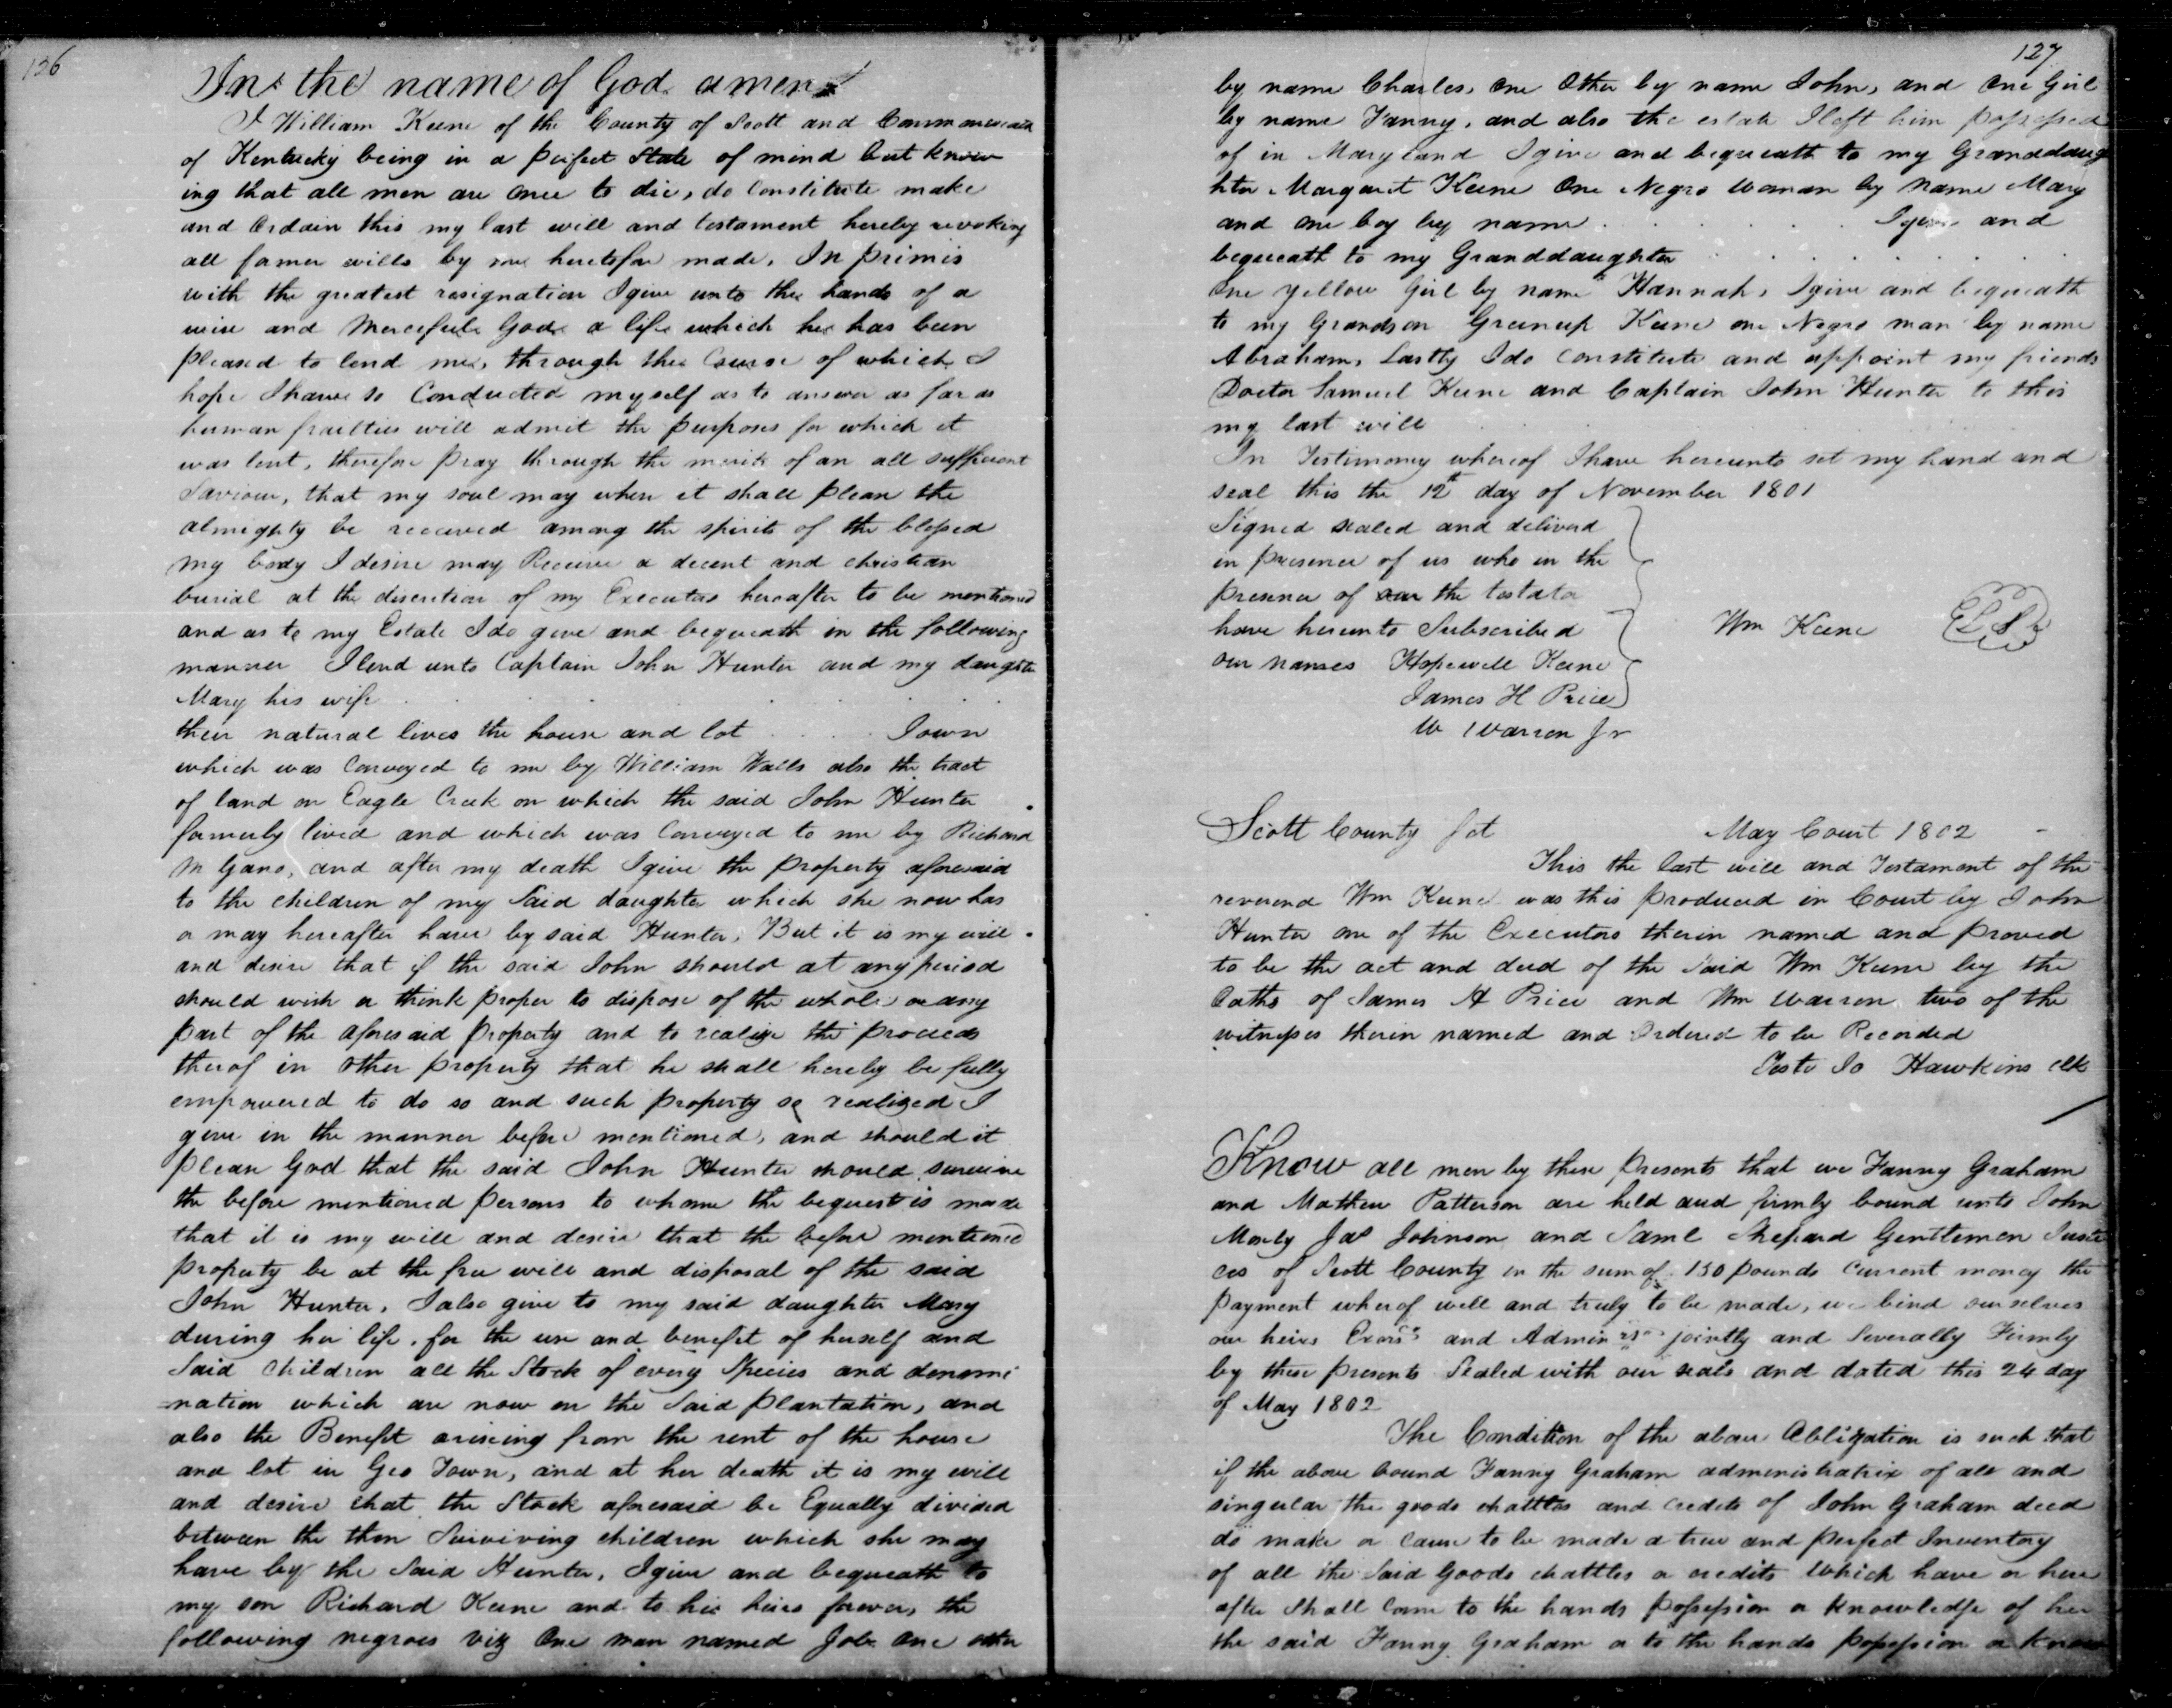 126
In the name of God amen
I William Keene of the County of Scott and Commonwealth
of Kentucky being in a perfect State of mind but know
ing that all men are once to die, do Constitute make
and Ordain this my last will and testament hereby revoking
all former wills by me heretofore made. In primis
with the greatest resignation I give unto the hands of a
wise and Merceful God a life which he has been
pleased to lend me, through the Course of which I
hope I have so Conducted myself as to answer as far as
human frailties will admit the purposes for which it
was lent, therefore pray through the merits of an all sufficient
Saviour, that my soul may when it shall please the
almighty be received among the spirits of the blessed
my body I desire may Receive a decent and christian
burial at the discretion of my Executors hereafter to be mentioned
and as to my Estate I do give and bequeath in the following
manner I lend unto Captain John Hunter and my daughter
Mary his wife . . . . .
their natural lives the house and lot . . . . Town
which was Conveyed to me by William Walls also the tract
of land on Eagle Creek on which the said John Hunter
formerly lived and which was Conveyed to me by Richard
M Gano, and after my death I give the property aforesaid
to the children of my Said daughter which she now has
or may hereafter have by said Hunter. But it is my will
and desire that if the said John should at any period
should wish or think proper to dispose of the whole or any
part of the aforesaid property and to realize the proceeds
therof in other property that he shall hereby be fully
empowered to do so and such property so realized I
give in the manner before mentioned, and should it
please God that the said John Hunter should survive
the before mentioned persons to whom the bequest is made
that it is my will and desire that the before mentioned
property be at the free will and disposal of the said
John Hunter, I also give to my said daughter Mary
during her life, for the use and benefit of herself and
Said children all the Stock of every Species and denomi
nation which are now on the Said plantation, and
also the Benefit ariseing from the rent of the house
and lot in Geo Town, and at her death it is my will
and desire that the Stock aforesaid be Equally divided
between the then Surviving children which she may
have by the Said Hunter, I give and bequeath to
my son Richard Keene and to his heirs forever, the
following negroes viz One man named Job One other
127
by name Charles, One Other by name John, and One Girl
by name Fanny, and also the estate I left him possessed
of in Maryland I give and bequeath to my Granddaug
hter Margaret Keene One Negro Woman by Name Mary
and one boy by name . . . . . I give and
bequeath to my Granddaughter . . . . . . .
One yellow Girl by name Hannah, I give and bequeath
to my Grandson Greenup Keene one Negro man by name
Abraham, Lastly I do Constitute and appoint my friends
Doctor Samuel Keene and Captain John Hunter to this
my last will
In Testimony whereof I have hereunto set my hand and
seal this the 12th day of November 1801
Signed sealed and deliverd
in presence of us who in the
presence of our the testator
have hereunto Subscribed Wm Keene L S
our names Hopewell Keene
James H Price
W Warren Jr
Scott County Sct May Court 1802
This the last will and Testament of the
reverend Wm Keene was this produced in Court by John
Hunter one of the Executors therin named and proved
to be the act and deed of the Said Wm Keene by the
Oaths of James H Price and Wm Warren two of the
witnesses therin named and Ordered to be Recorded
Teste Jo Hawkins clk
Know all men by these Presents that we Fanny Graham
and Mathew Patterson are held and firmly bound unto John
Mosby Jas Johnson and Saml Shepard Gentlemen Justi
ces of Scott County in the sum of 150 pounds Current money the
payment wherof well and truly to be made, we bind ourselves
our heirs Exors and Adminrs jointly and Severally Firmly
by these presents Sealed with our seals and dated this 24 day
of May 1802
The Condition of the above Obligation is such that
if the above bound Fanny Graham administratrix of all and
singular the goods chattles and credits of John Graham decd
do make or Cause to be made a true and perfect Inventory
of all the Said Goods chattles or credits Which have or here
after Shall Come to the hands possession or Knowledge of her
the said Fanny Graham or to the hands possession or Know